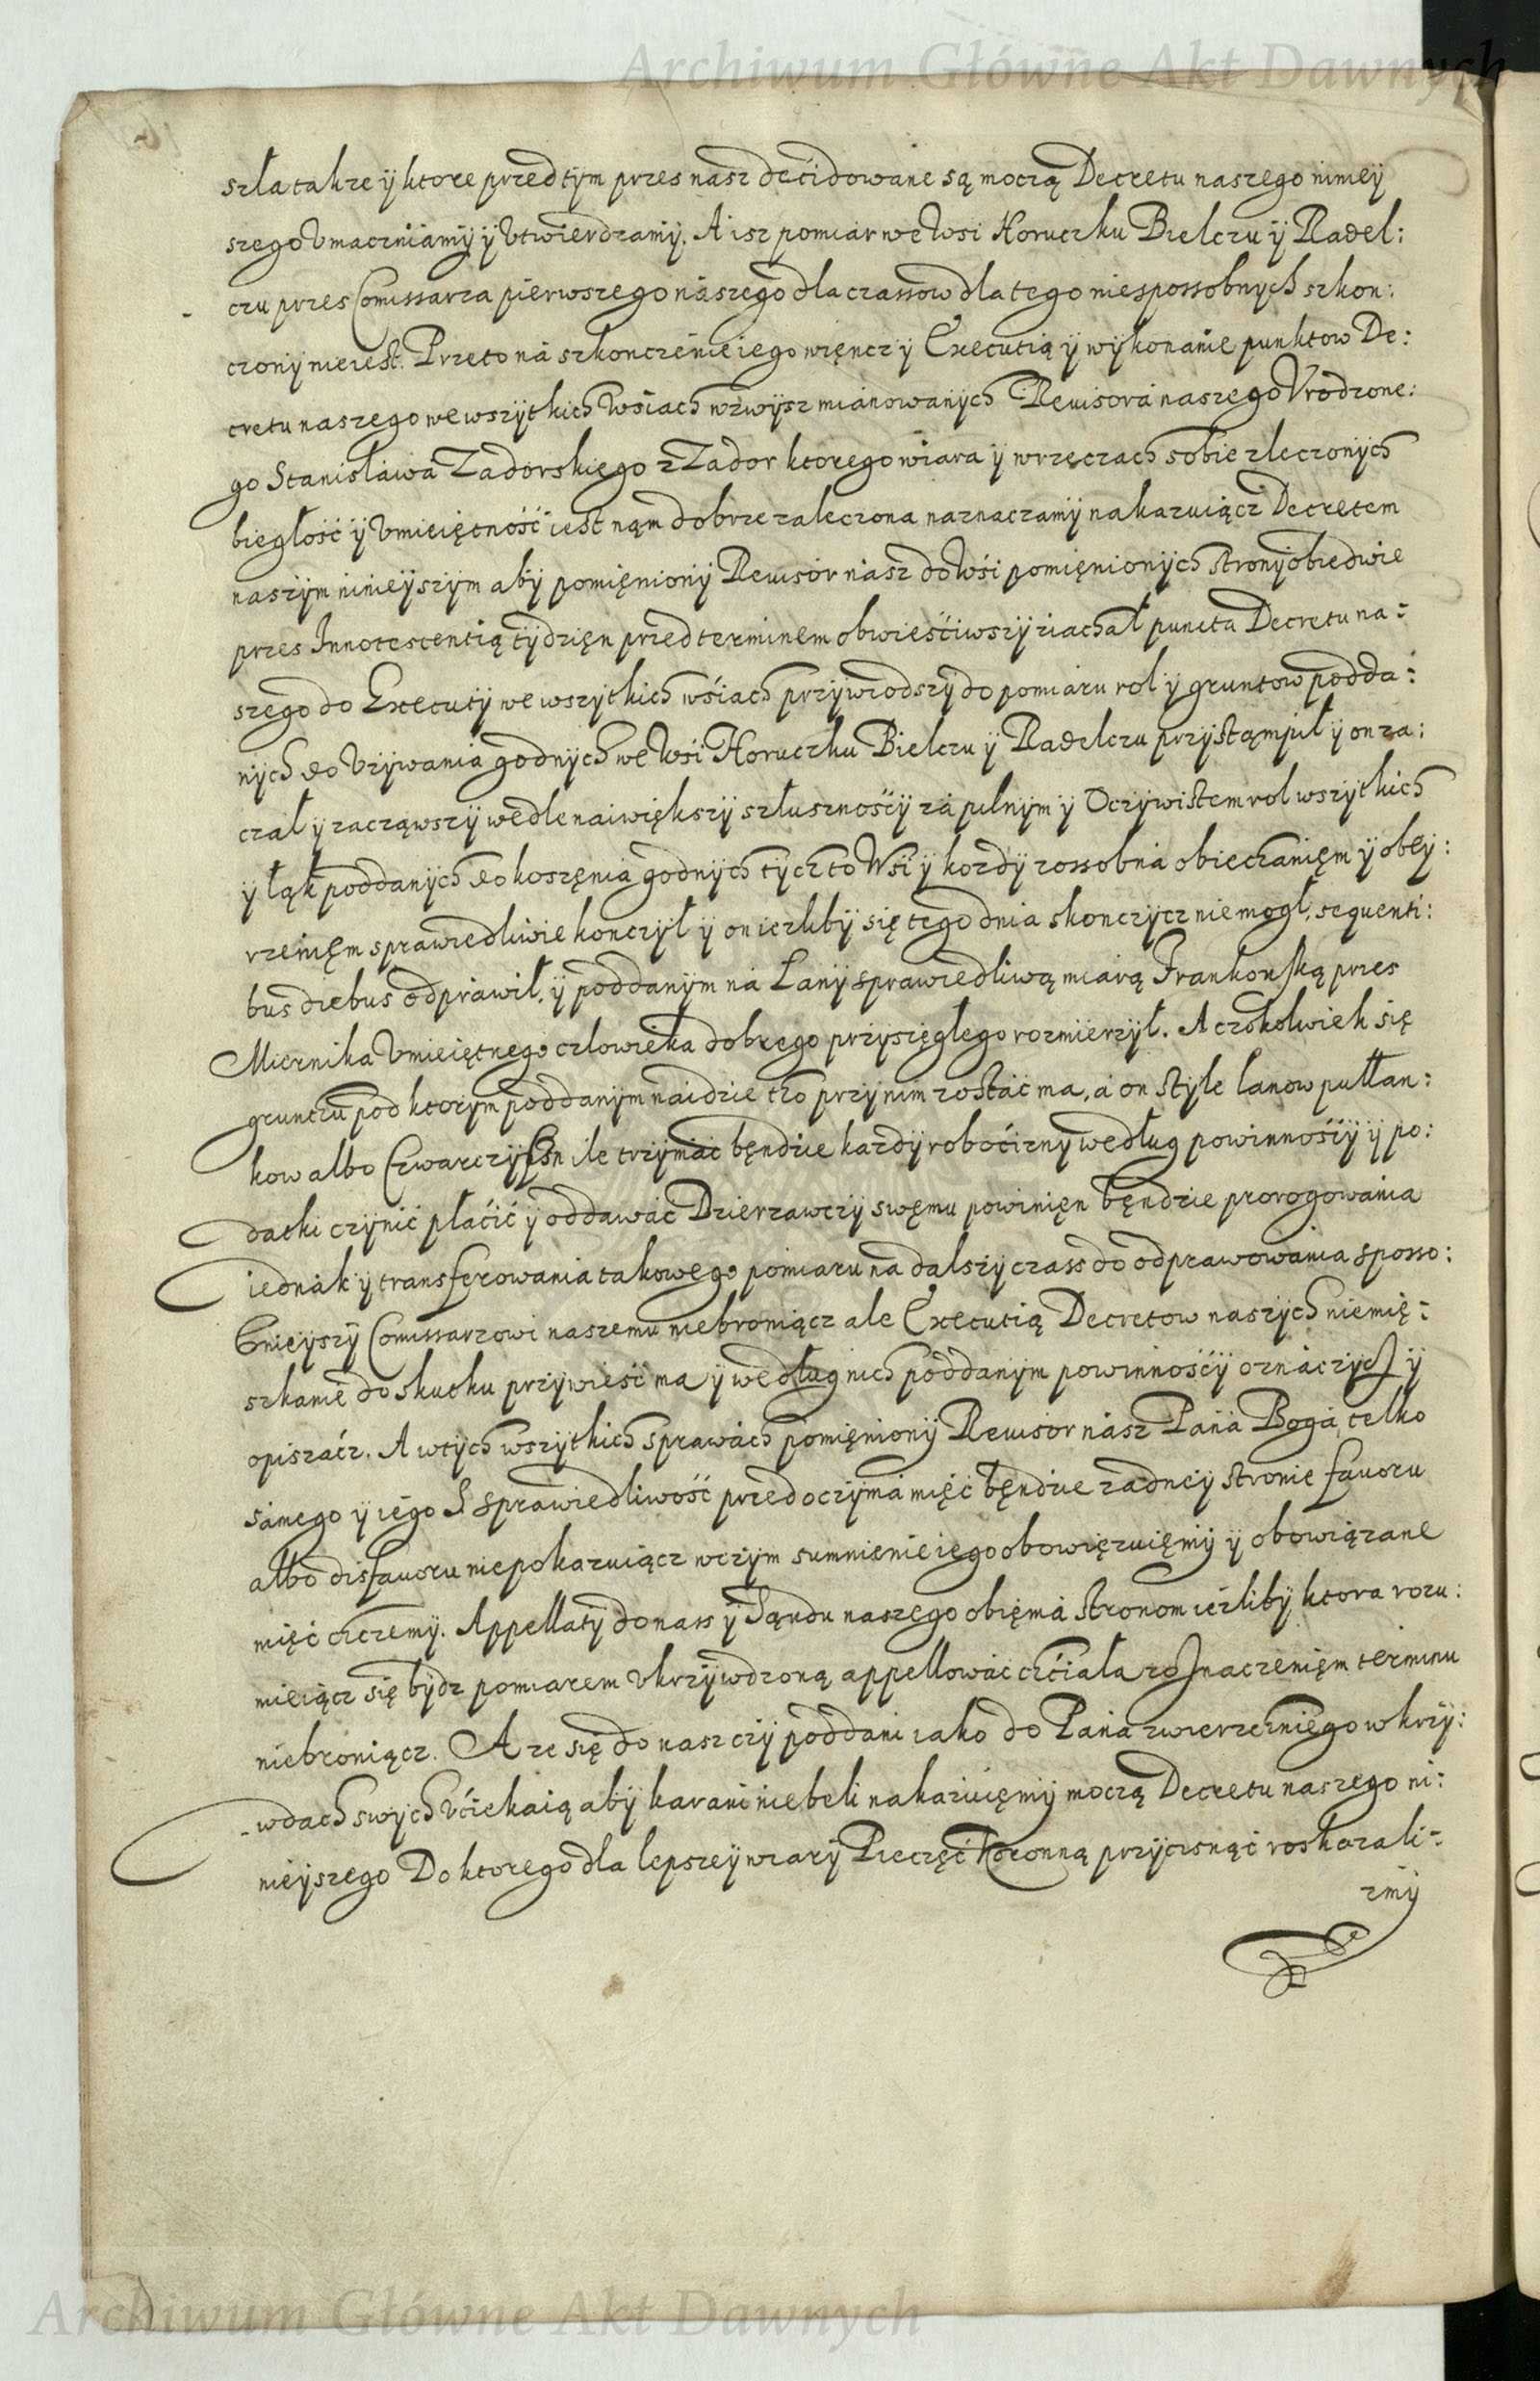 Archiwum Główne Akt Dawnych
szła takze ÿ ktore przed tÿm przes nasz decidowane są moczą Decretu naszego niniey
szego Vmaczniamÿ ÿ Vtwierdzamÿ. A isz pomiar we Wsi Horuczku Bielczu ÿ Radel:
czu przes Comissarza pierwszego naszego dla czassow dla tego niespossobnych szkon:
czonÿ nie iest. Przeto na szkonczenie iego więncz ÿ Executią ÿ wÿkonanie punktow De:
cretu naszego we wszÿtkich Wsiach wzwÿsz mianowanÿch Reuisora naszego Vrodzone:
go Stanisława Zadorskięgo z Zador ktorego wiara ÿ w rzęczach sobie zleczonÿch
biegłość ÿ Vmieiętność iest nąm dobrze zaleczona naznaczamÿ nakazuiącz Decretem
naszÿm ninieÿszÿm abÿ pomięnionÿ Reuisor nasz do Wsi pomięnionÿch stronÿ obiedwie
przes Innotescentią tÿdzięn przed terminem obwieściwszÿ ziachał puncta Decretu na:
szego do Executÿ we wszÿtkich wsiach przÿwiodszÿ do pomiaru rol ÿ gruntow podda:
nÿch do Vzÿwania godnÿch we Wsi Horuczku Bielczu ÿ Radelczu przÿstąmpił ÿ on za:
czał ÿ zacząwszÿ wedle naiwiększÿ szłusznościÿ za pilnÿm ÿ Oczÿwistem rol wszÿtkich
ÿ łąk poddanÿch do koszęnia godnÿch tÿcz to Wsi ÿ kozdÿ zossobna obieczanięm ÿ obeÿ:
rzeinięm sprawiedliwie konczÿł ÿ on iezlibÿ się tego dnia skonczÿcz nie mogł, sequenti:
bus diebus odprawił, ÿ poddanÿm na Lanÿ sprawiedliwą miarą Frankonską przes
Miernika Vmieiętnego człowieka dobrego przÿsięgłego rozmierzÿł. A czokolwiek się
gruntu pod ktorÿm poddanÿm naidzie tzo przÿ nim zostać ma, a on stÿle lanow pułłan:
kow albo Czwarczÿzn ile trzÿmać bęndzie kazdÿ robocznÿ według powinnościÿ ÿ po:
datki czÿnić płacić ÿ oddawać Dzierzawczÿ swęmu powinięn będzie prorogowania
iednak ÿ transferowania takowego pomiaru na dalszÿ czass do odprawowania sposso:
bnieÿszÿ Comissarzowi naszemu niebroniącz ale Executią Decretow naszÿch niemię:
szkanie do skutku przÿwieść ma ÿ według nich poddanÿm powinnościÿ oznaczÿcz ÿ
opiszacz. A w tÿch wszÿtkich sprawach pomięnionÿ Reuisor nasz Pana Boga telko
samego ÿ iego S sprawiedliwość przed oczÿma mięć bęndzie zadneÿ stronie fauoru
albo disfauoru niepokazuiącz w czÿm sumnienie iego obowięzuięmÿ ÿ obowiązane
mięć chczemÿ. Appellatÿ do nass ÿ Sąndu naszego obięma stronom iezlibÿ ktora rozu:
mieiącz się bÿdz pomiarem vkrzÿwdzoną appellować chciała z oznaczenięm terminu
niebroniącz. A ze się do nasz czÿ poddani iako do Pana zwierzchniego w krzÿ:
wdach swÿch vciekaią abÿ karani niebeli nakazuięmÿ moczą Decretu naszego ni:
nieÿszego Do ktorego dla lepszeÿ wiarÿ Pieczęć Koronną przÿcisnąć roskazali:
zmÿ
Archiwum Główne Akt Dawnych